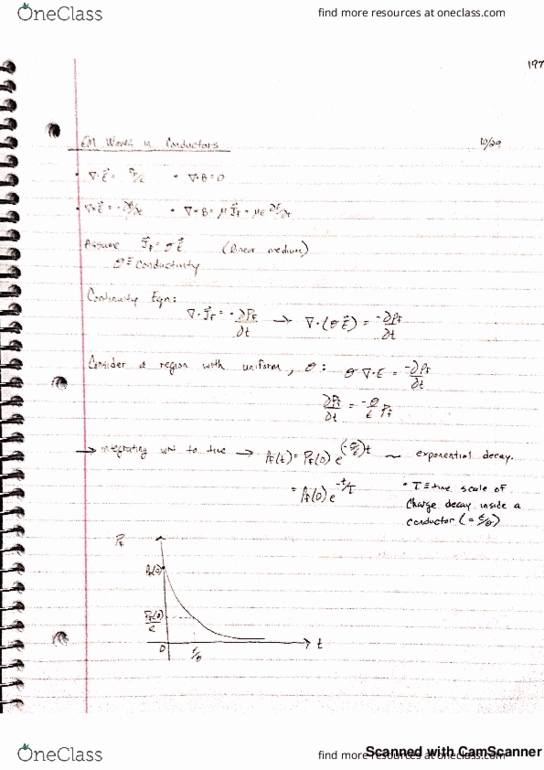 OneClass
find more resources at oneclass.com
197
EM Waves in Conductors
10/29
• ∇·E = ρf/ε • ∇·B=0
• ∇×E = -∂B/∂t • ∇×B = μJf + με ∂E/∂t
Assume Jf = σE (linear medium)
σ ≡ Conductivity
Continuity Eqn:
∇·Jf = -∂ρf/∂t → ∇·(σE) = -∂ρf/∂t
Consider a region with uniform, σ: σ∇·E = -∂ρf/∂t
∂ρf/∂t = -σ/ε ρf
→ integrating wrt to time → ρf(t) = ρf(0) e^(-σ/ε)t ~ exponential decay.
= ρf(0) e^-t/τ
• τ ≡ time scale of
Charge decay inside a
conductor (= ε/σ)
ρf
ρf(0)
ρf(0)/e
0
ε/σ
t
OneClass
find more resources at oneclass.com
Scanned with CamScanner